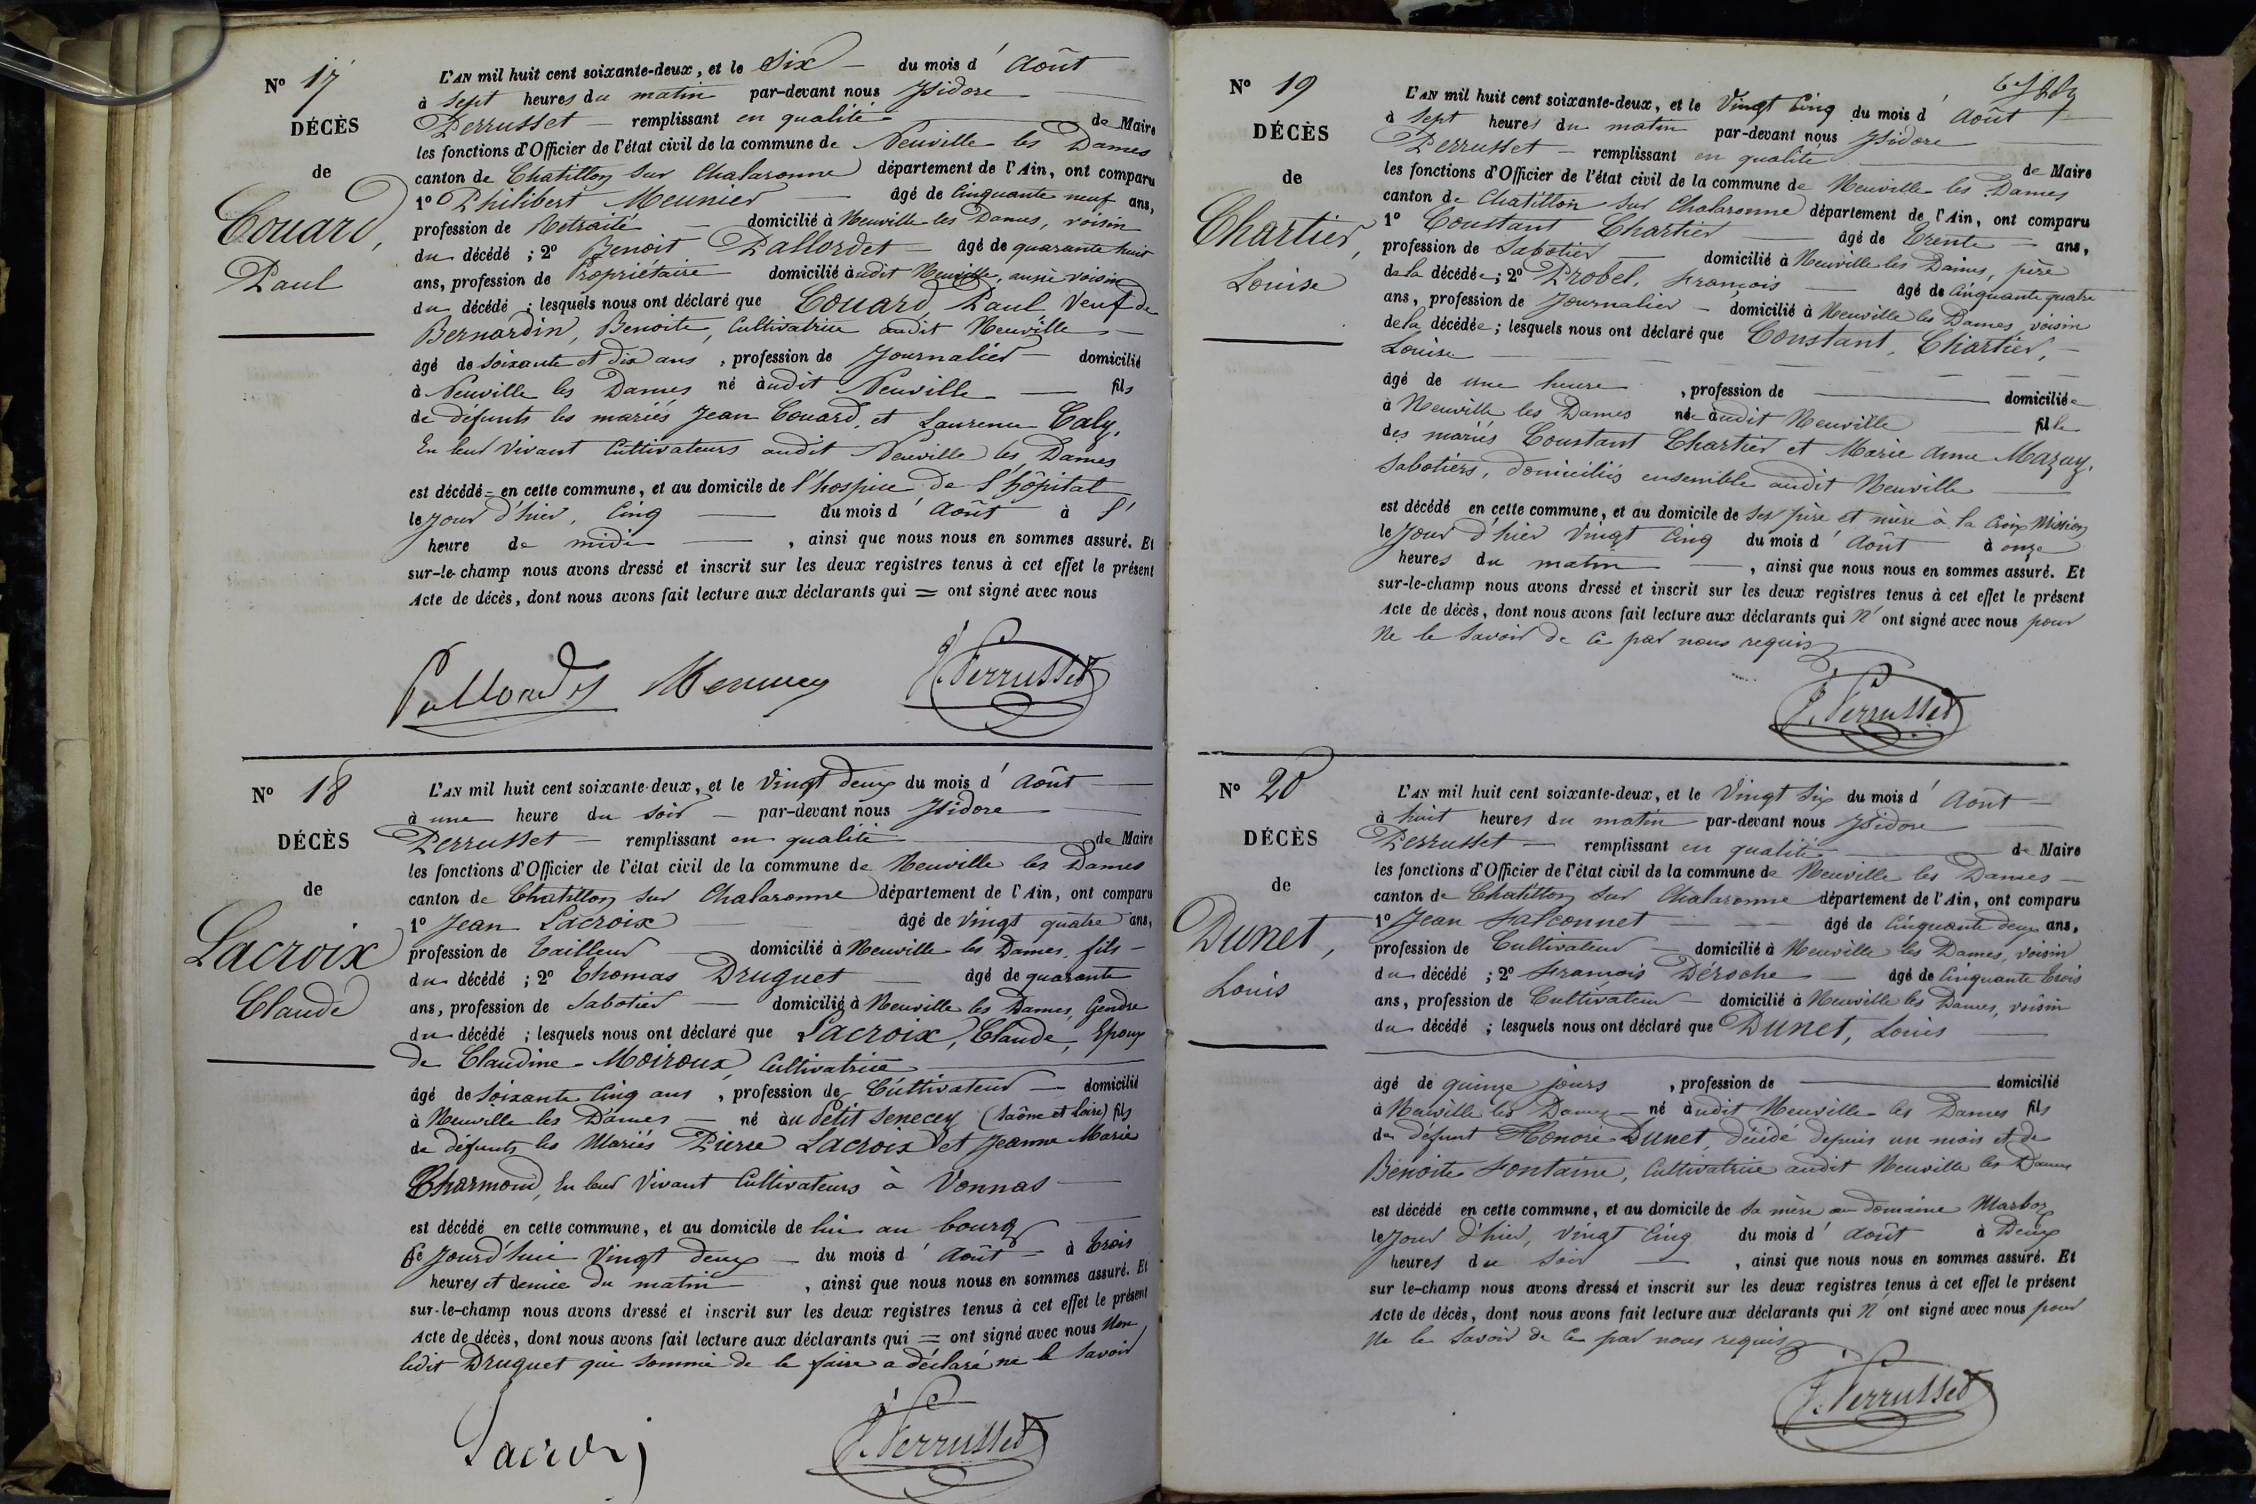 N° 17
DÉCÈS
de
Couard,
Paul
L'AN mil huit cent soixante-deux, et le Six du mois d' Août
à sept heures du matin par-devant nous Isidore
Perrusset remplissant en qualité de Maire
les fonctions d'Officier de l'état civil de la commune de Neuville les Dames
canton de Chatillon sur Chalaronne département de l'Ain, ont comparu
1° Philibert Meunier âgé de Cinquante neuf ans,
profession de Retraité domicilié à Neuville les Dames, voisin
du décédé ; 2° Benoit Pallordet âgé de quarante huit
ans, profession de Propriétaire domicilié àudit Neuville, aussi voisin
du décédé ; lesquels nous ont déclaré que Couard, Paul, Veuf de
Bernardin, Benoite, Cultivatrice audit Neuville
âgé de soixante et dix ans, profession de Journalier domicilié
à Neuville les Dames né àudit Neuville fils
de défunts les mariés Jean Couard, et Laurence Caly,
En leur vivant Cultivateurs audit Neuville les Dames
est décédé en cette commune, et au domicile de l'hospice de l'hôpital
le Jour d'hier, Cinq du mois d' Août à l'
heure de midi, ainsi que nous nous en sommes assuré. Et
sur-le-champ nous avons dressé et inscrit sur les deux registres tenus à cet effet le présent
Acte de décès, dont nous avons fait lecture aux déclarants qui = ont signé avec nous
Meunier
Perrusset
N° 18
DÉCÈS
de
Lacroix
Claude
L'AN mil huit cent soixante-deux, et le Vingt deux du mois d' Août
à une heure du soir par-devant nous Isidore
Perrusset remplissant en qualité de Maire
les fonctions d'Officier de l'état civil de la commune de Neuville les Dames
canton de Chatillon sur Chalaronne département de l'Ain, ont comparu
1° Jean Lacroix âgé de Vingt quatre ans,
profession de Tailleur domicilié à Neuville les Dames, fils
du décédé ; 2° Thomas Druguet âgé de quarante
ans, profession de Sabotier domicilié à Neuville les Dames, Gendre
du décédé ; lesquels nous ont déclaré que Lacroix, Claude, Epoux
de Claudine Moiroux, Cultivatrice
âgé de Soixante Cinq ans, profession de Cultivateur domicilié
à Neuville les Dames né àu Petit Senecey (Saône et Loire) fils
de défunts les Mariés Pierre Lacroix et Jeanne Marie
Charmond, En leur Vivant Cultivateurs à Vonnas
est décédé en cette commune, et au domicile de lui au bourg
Ce Jourd'hui Vingt deux du mois d' Août à Trois
heures et demie du matin, ainsi que nous nous en sommes assuré. Et
sur-le-champ nous avons dressé et inscrit sur les deux registres tenus à cet effet le présent
Acte de décès, dont nous avons fait lecture aux déclarants qui = ont signé avec nous Non
ledit Druguet qui sommé de le faire a déclaré ne le savoir
Lacroix
Perrusset
N° 19
DÉCÈS
de
Chartier,
Louise
L'AN mil huit cent soixante-deux, et le Vingt Cinq du mois d' Août
à Sept heures du matin par-devant nous Isidore
Perrusset remplissant en qualité de Maire
les fonctions d'Officier de l'état civil de la commune de Neuville les Dames
canton de Chatillon sur Chalaronne département de l'Ain, ont comparu
1° Constant Chartier âgé de Trente ans,
profession de Sabotier domicilié à Neuville les Dames, père
de la décédée ; 2° Probel, François âgé de Cinquante quatre
ans, profession de Journalier domicilié à Neuville les Dames, voisin
de la décédée ; lesquels nous ont déclaré que Constant, Chartier,
Louise
âgé de une heure, profession de domiciliée
à Neuville les Dames née àudit Neuville fille
des mariés Constant Chartier et Marie Anne Mazuy,
Sabotiers, domiciliés ensemble audit Neuville
est décédé en cette commune, et au domicile de ses père et mère à la Croix Mission
le Jour d'hier Vingt Cinq du mois d' Août à onze
heures du matin, ainsi que nous nous en sommes assuré. Et
sur-le-champ nous avons dressé et inscrit sur les deux registres tenus à cet effet le présent
Acte de décès, dont nous avons fait lecture aux déclarants qui n' ont signé avec nous pour
Ne le Savoir de Ce par nous requis
Perrusset
N° 20
DÉCÈS
de
Dunet,
Louis
L'AN mil huit cent soixante-deux, et le Vingt Six du mois d' Août
à huit heures du matin par-devant nous Isidore
Perrusset remplissant en qualité de Maire
les fonctions d'Officier de l'état civil de la commune de Neuville les Dames
canton de Chatillon sur Chalaronne département de l'Ain, ont comparu
1° Jean Falconnet âgé de Cinquante deux ans,
profession de Cultivateur domicilié à Neuville les Dames, voisin
du décédé ; 2° François Déroche âgé de Cinquante trois
ans, profession de Cultivateur domicilié à Neuville les Dames, voisin
du décédé ; lesquels nous ont déclaré que Dunet, Louis
âgé de quinze jours, profession de domicilié
à Neuville les Dames né àudit Neuville les Dames fils
de défunt Honoré Dunet, décédé depuis un mois et de
Benoite Fontaine, Cultivatrice audit Neuville les Dames
est décédé en cette commune, et au domicile de sa mère au domaine Marboz
le Jour d'hier, Vingt Cinq du mois d' Août à Deux
heures du Soir, ainsi que nous nous en sommes assuré. Et
sur le-champ nous avons dressé et inscrit sur les deux registres tenus à cet effet le présent
Acte de décès, dont nous avons fait lecture aux déclarants qui n' ont signé avec nous pour
Ne le Savoir de Ce par nous requis
Perrusset